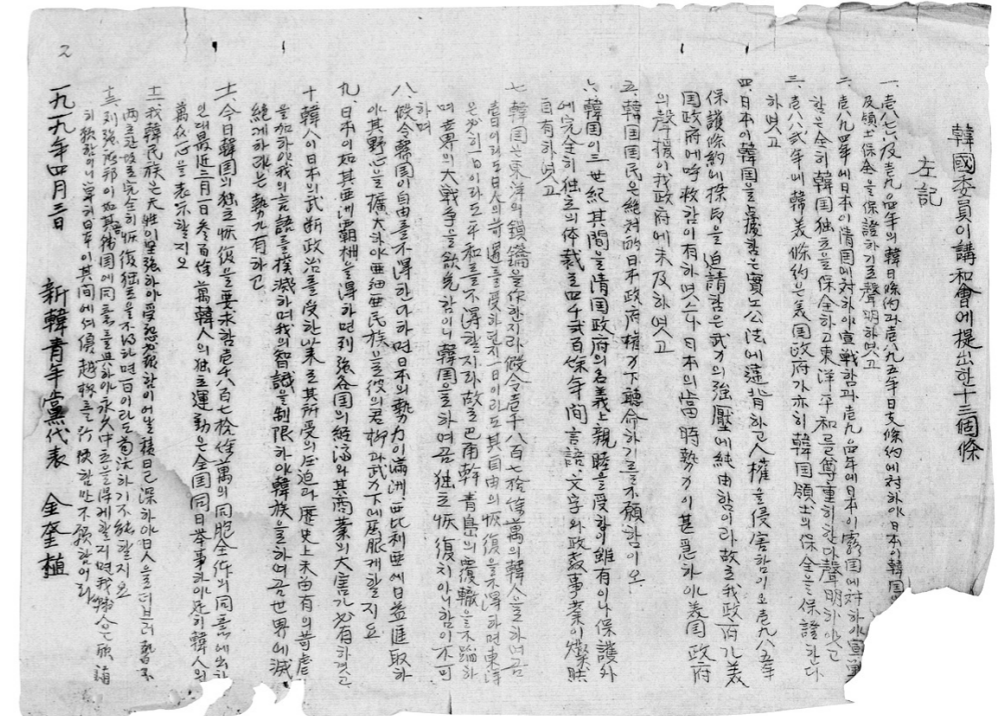 2
韓國委員이講和會에提出한十三個條
左記
一、壱八七六及壱九〇四年의韓日條約과壱八九五年日支條約에対하야日本이韓国
及領土保全을保證하기로聲明하엿고
二、壱八九四年에日本이清国에対하야宣戰함과壱九〇四年에日本이露国에対하야宣戰
함은全히韓国独立을保全하고東洋平和를尊重히한다聲明하야고
三、壱八八弐年에韓美條約은美国政府가亦히韓国領土의保全을保證한다
하엿고
四、日本이韓国을虐함은實노公法에違背하고人權을侵害함이오壱九〇五年
保護條約에捺印을迫請함은武力의強壓에純由함이라故로我政府가美
国政府에呼救함이有하엿스나日本의當時勢力이甚悪하야美国政府
의聲援이我政府에未及하엿고
五、韓国国民은絶対的日本政府權力下聽命하기를不願함이오
六、韓国이三世紀其間을清国政府의名義上親睦을受함이雖有이나保護外
에完全히独立의体裁로四千弐百余年間言語、文字와政敎事業이燦然
自有하엿고
七、韓国은東洋의鎖鑰을作한지라假令壱千八百七拾余萬의韓人을하여곰
壱日이라도日人의苛遇를受하면지一日이라도其自由의恢復을不得하면東洋
은必히一日이라도平和를不得할지라故로巴爾幹青島의覆轍을不踏하
며世界의大战争을欲免함이니韓国을하여곰独立恢復지아니함이不可
하며
八、假令韓国이自由를不得한다하면日本의勢力이滿洲、西比利亜에日益匯取하
야其野心을擴大하야亜細亜民族을彼의君柳과武力下에屈服게할지오
九、日本이如其亜洲覇權을得하면列強各国의経済와其商業의大害가必有하겟고
十、韓人이日本의武断政治를受한以来로其所受의圧迫과歷史上未曽有의苛虐
을加하야我의言語를撲滅하며我의智識을制限하야韓族을하여곰世界에滅
絶게하라는勢가有하고
十一、今日韓国의独立恢復을要求함은壱千八百七拾余萬의同胞全体의同意에出하
인대最近三月一日叁百餘萬韓人의独立運動은全国同日挙事하야近히韓人의
萬人一心을表示할지오
十二、我韓民族은天性이堅強하야受怨必報함이어날積日已深하야日人을
両立한後로完全히恢復独立을不得하면百이라도苟活하기不能할지오
十三、列強諸邦이如其韓国에同意를하야永久中立을得게할지면我韓
히独立이니単히日本이其間에셔優越權을行使함만不願함이라
一九一九年四月三日
新韓青年黨代表 金奎植